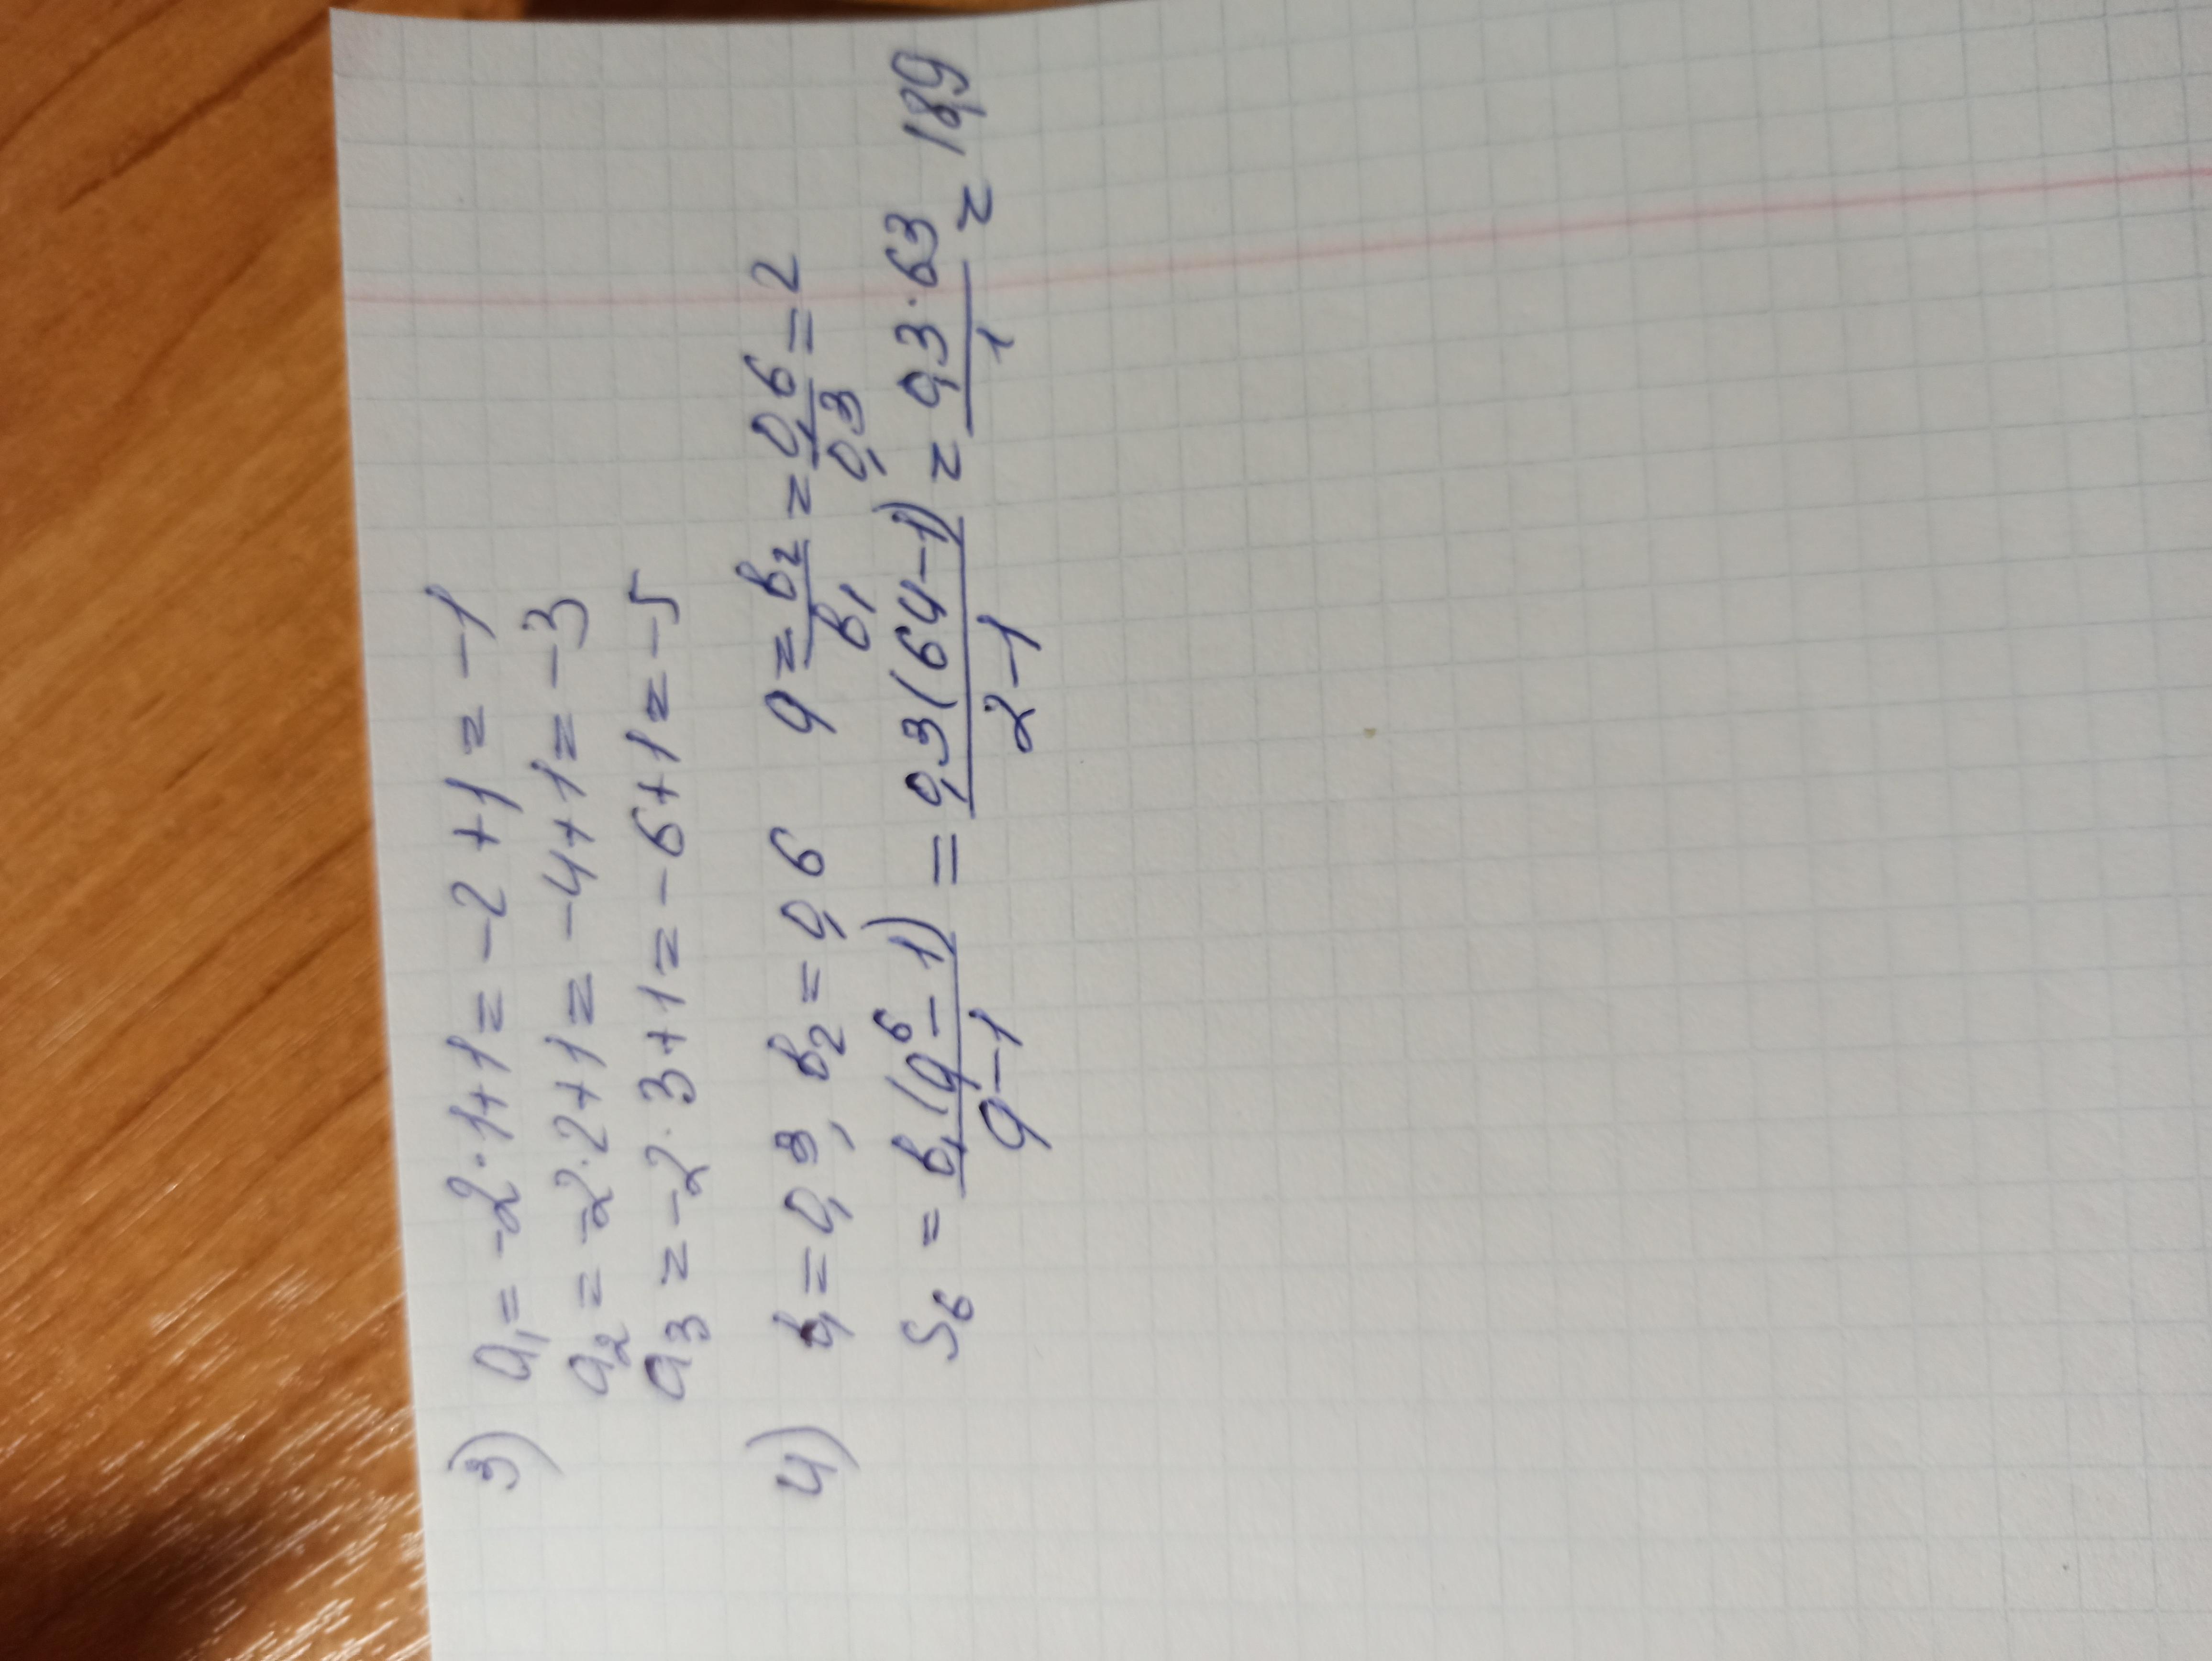 3) a₁ = -2·1+1 = -2+1 = -1
a₂ = -2·2+1 = -4+1 = -3
a₃ = -2·3+1 = -6+1 = -5
4) b₁ = 0,3, b₂ = 0,6 q = b₂/b₁ = 0,6/0,3 = 2
S₆ = b₁(q⁶-1)/q-1 = 0,3(64-1)/2-1 = 0,3·63/1 = 18,9